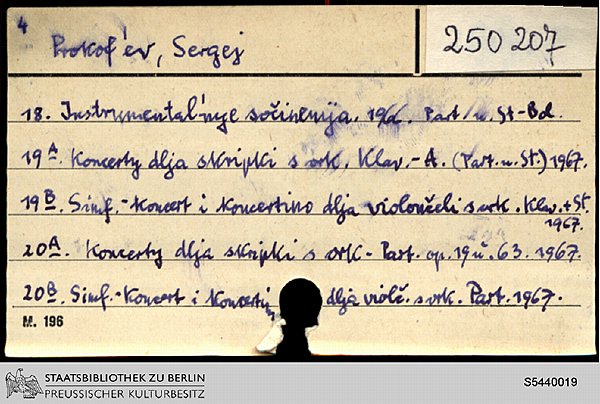 4
Prokof'ev, Sergej
250 207
18. Instrumental'nye sočinenija. Part u. St-Bd.
19A. Koncerty dlja skripki s ork. Klav.-A. (Part. u. St.) 1967.
19B. Simf.-Koncert i koncertino dlja violončeli s ork. Klav. + St. 1967.
20A. Koncerty dlja skripki s ork - Part. op. 19 u. 63. 1967.
20B. Simf.-Koncert i Koncertin dlja violč. s ork. Part. 1967.
M. 196
STAATSBIBLIOTHEK ZU BERLIN
PREUSSISCHER KULTURBESITZ
S5440019